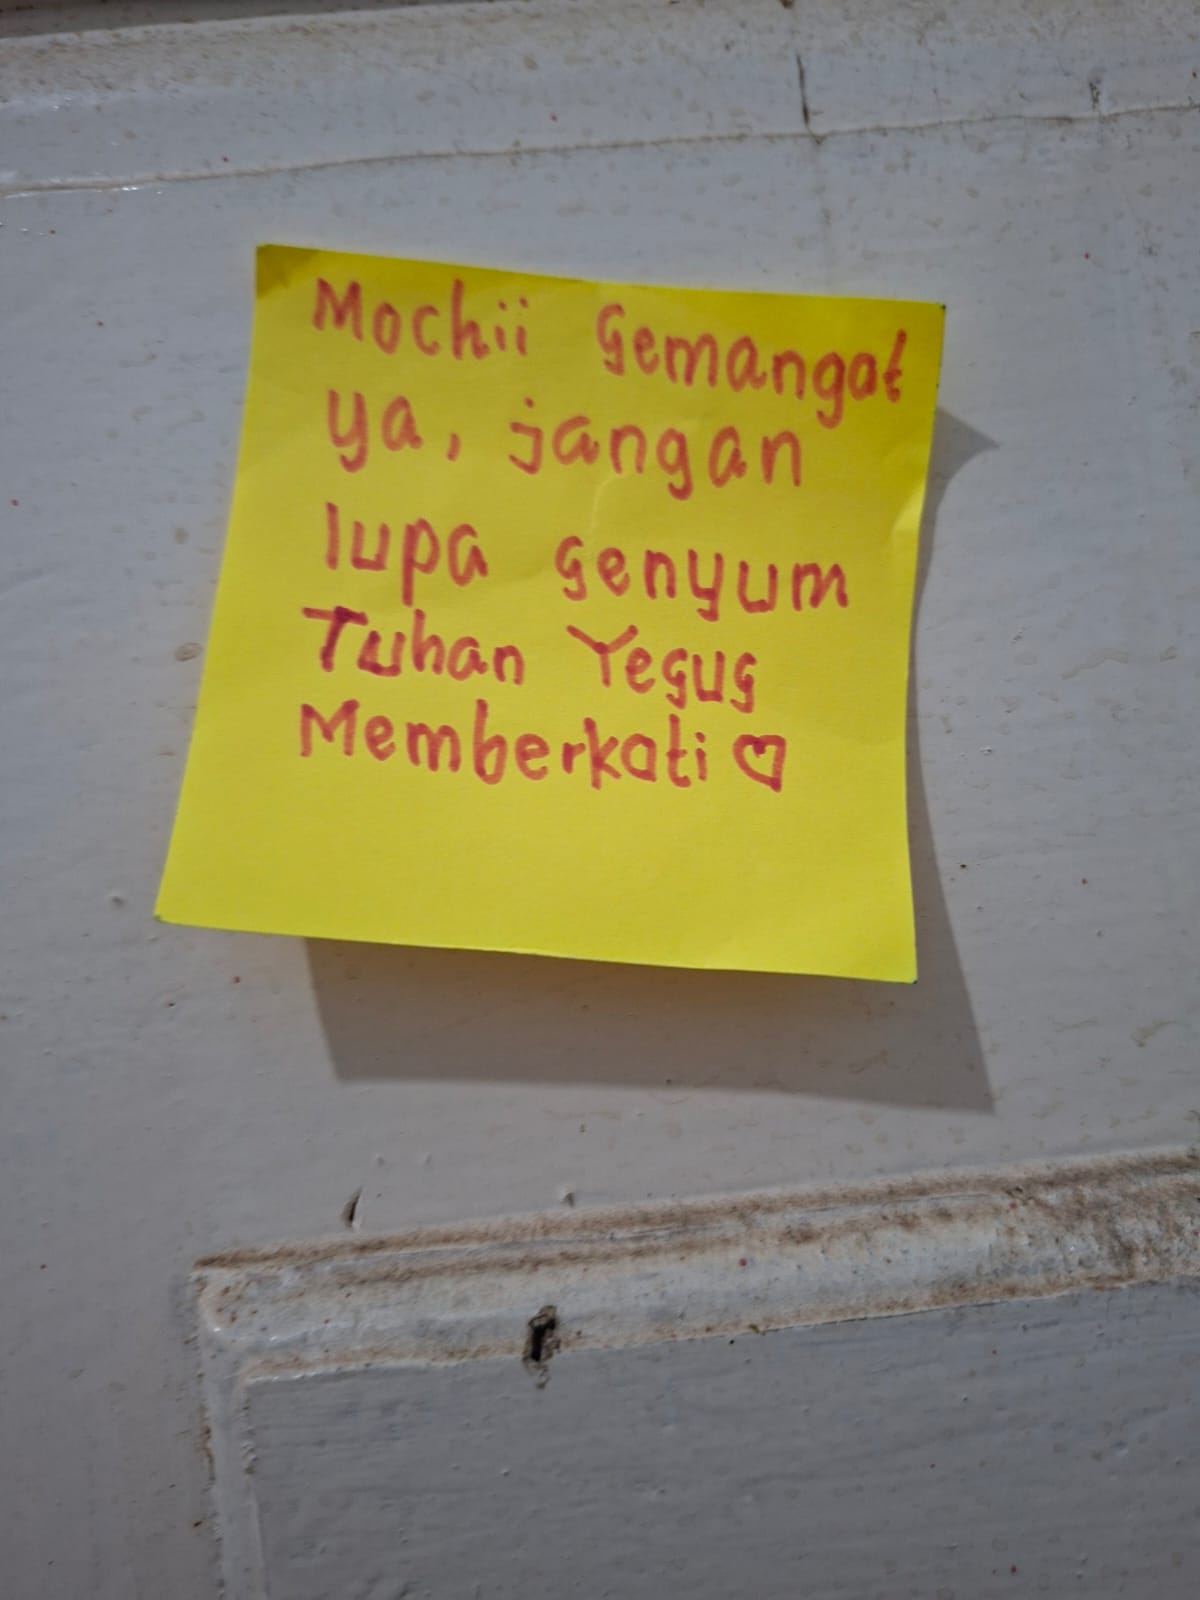 Mochii Semangat
ya, jangan
lupa senyum
Tuhan Yesus
Memberkati ♡